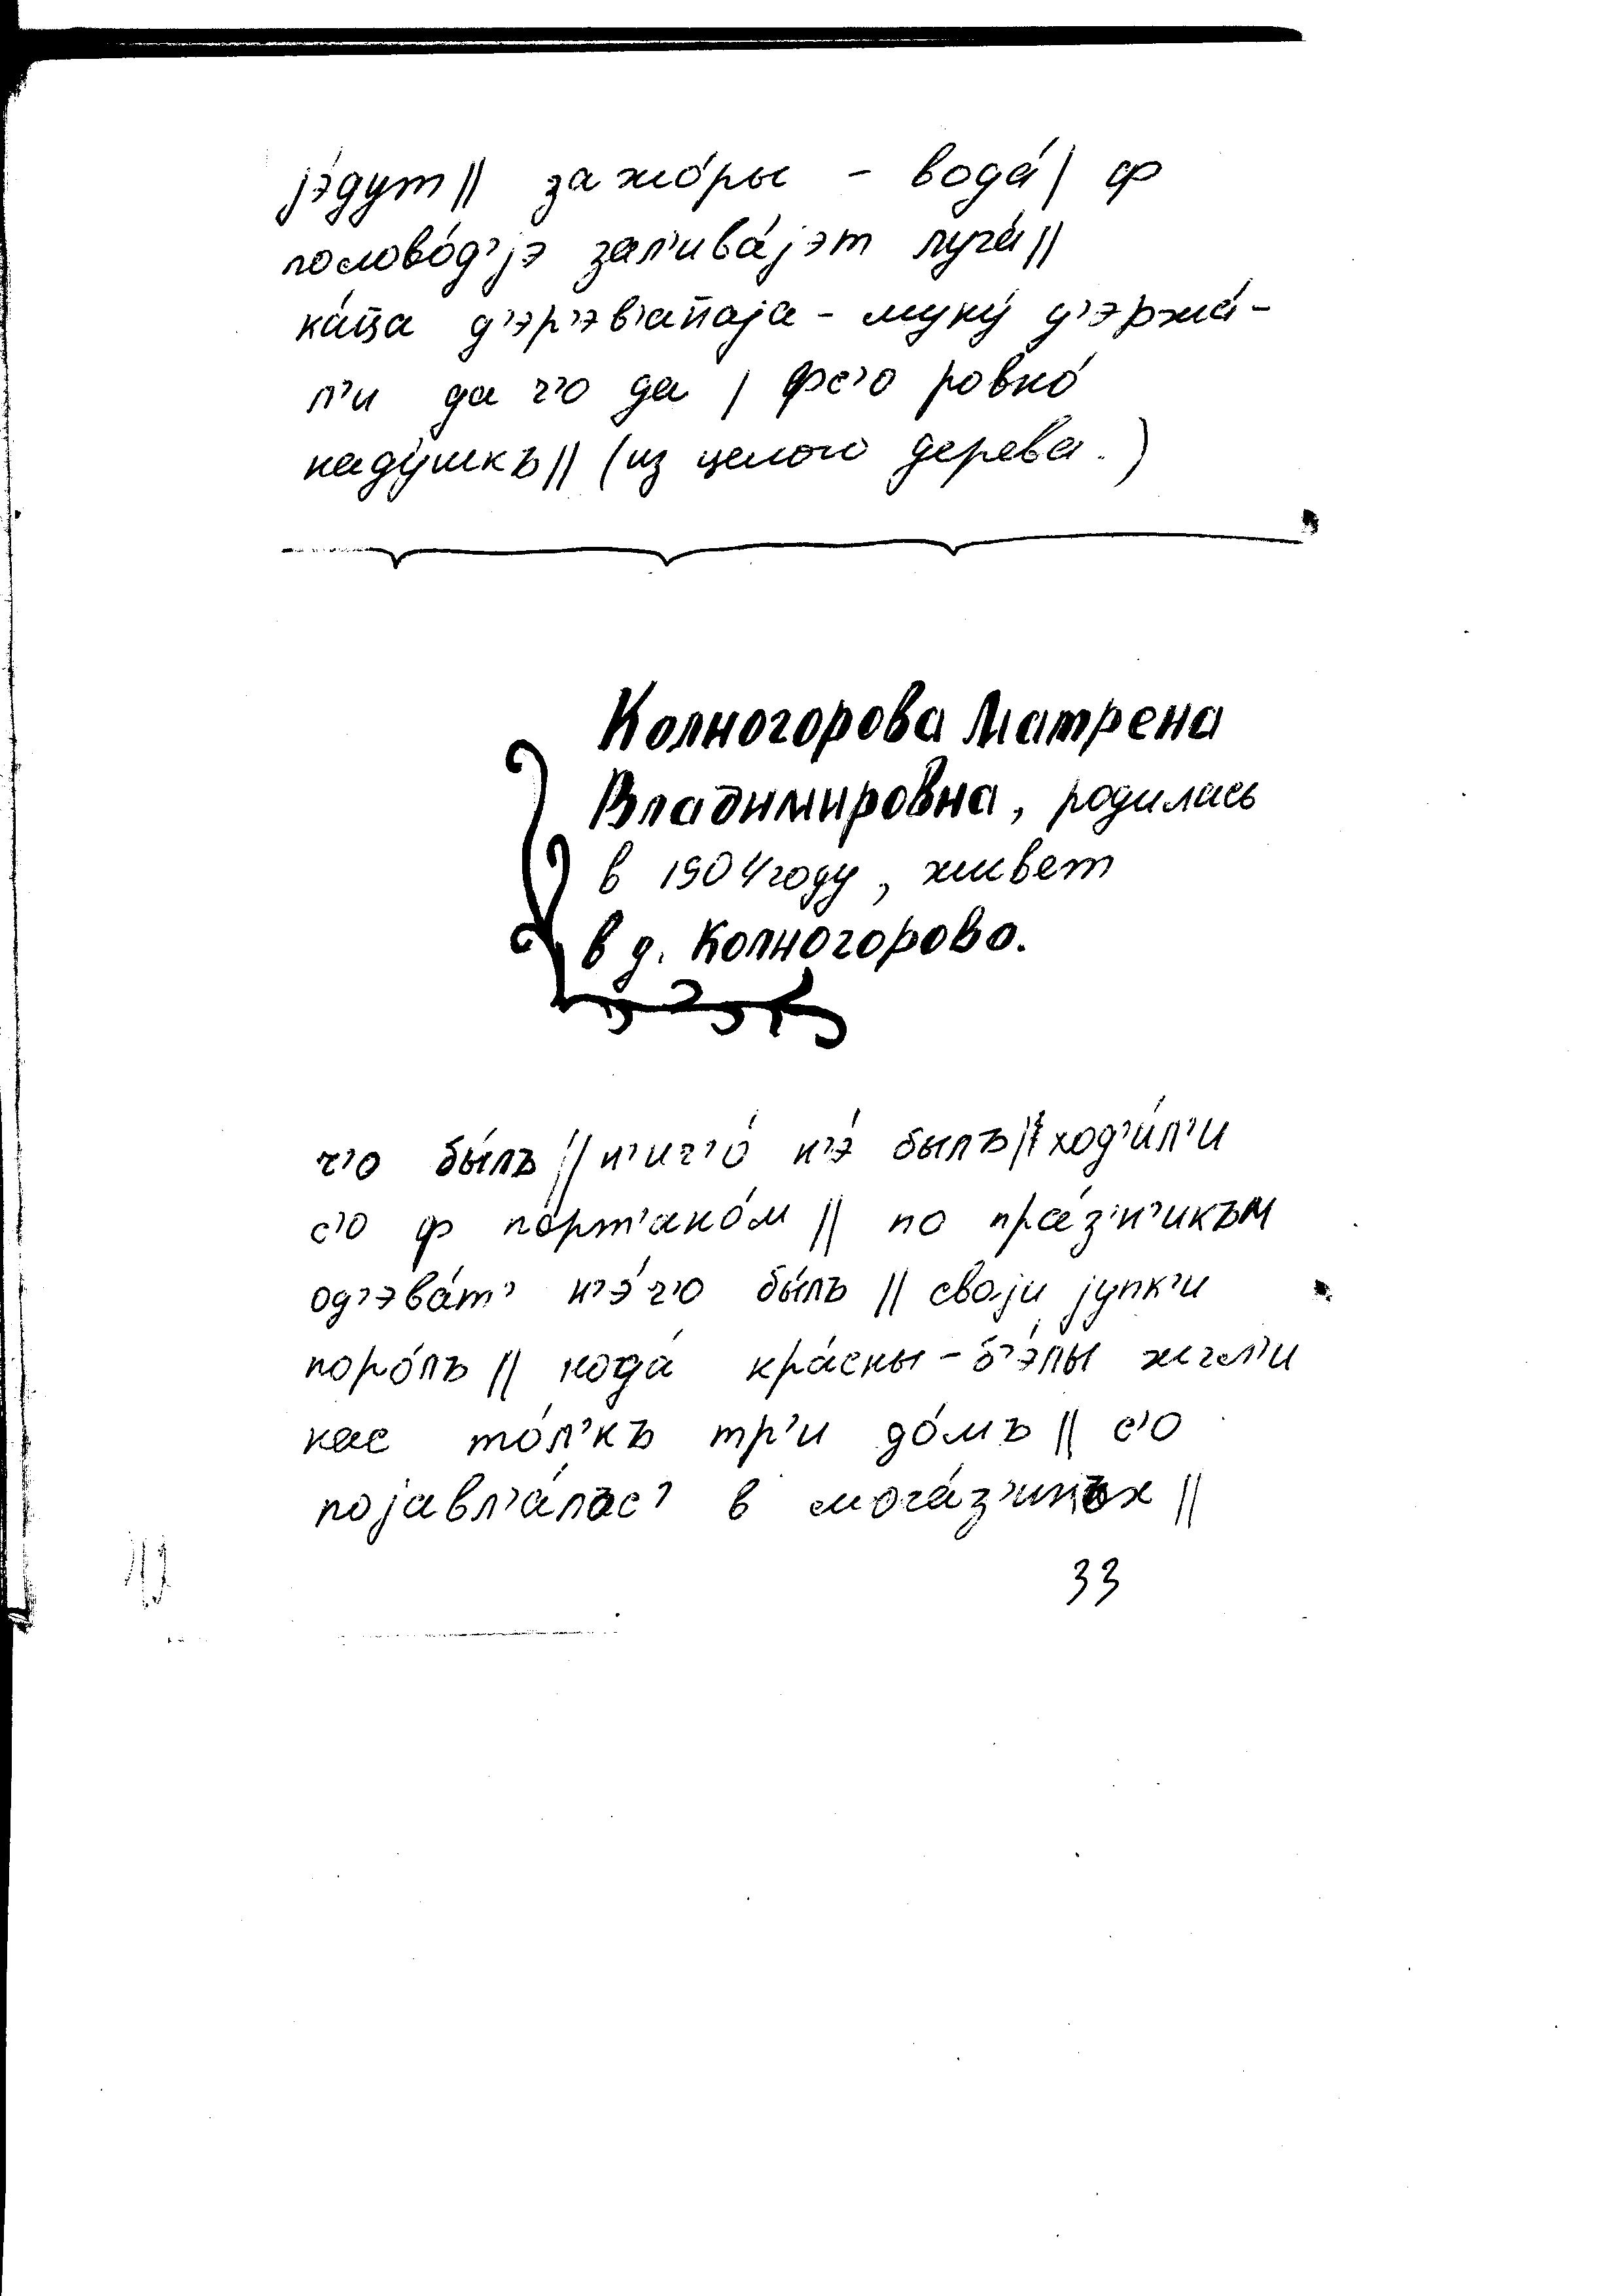 јэ́дут || зажо́ры - вода́ | ф
полово́д'јэ зал'ива́јэт луга́ ||
д'эр'эв'а́наја - муку́ д'эржа́-
л'и да ч'о да | фс'о ровно́
кадушкъ || (из целого дерева.)
Колногорова Матрена
Владимировна, родилась
в 1904 году, живет
в д. Колногорово.
ч'о бы́лъ || н'ич'о́ н'э́ былъ || ход'и́л'и
с'о ф порт'ано́м || по пра́з'н'икъм
од'эва́т' н'э́ч'о бы́лъ || своји јупк'и
поро́лъ || кода́ кра́сны-б'э́лы жгл'и
нас то́л'къ тр'и до́мъ || с'о
појавл'а́лъс' в мога́з'инъх ||
33